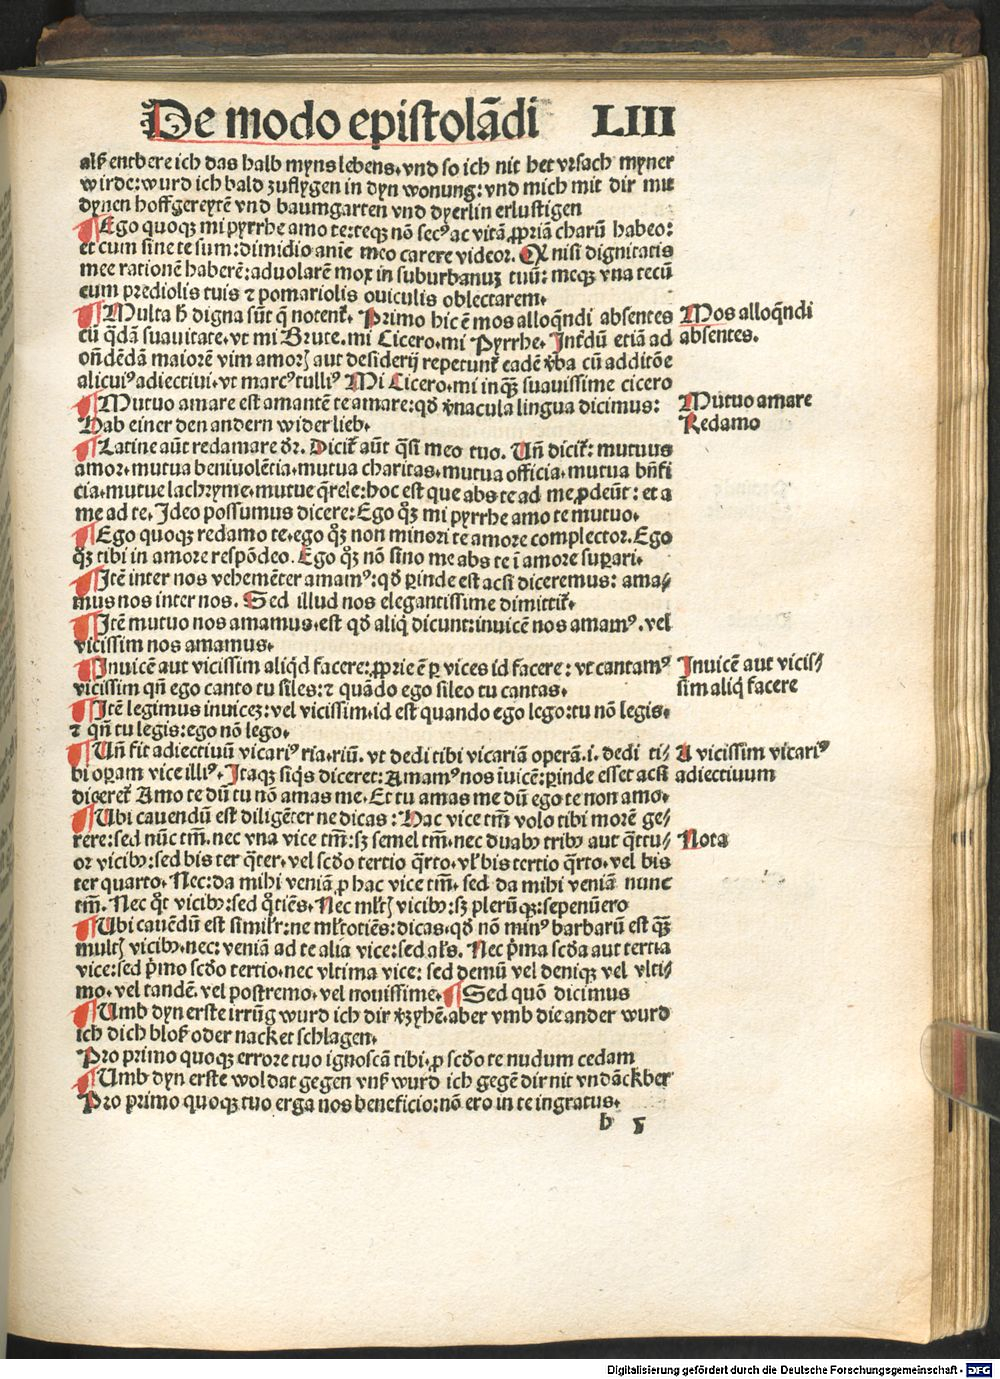 De modo epistolādi LIII
alß entbere ich das halb myns lebens. vnd so ich nit het vrsach myner
wirde: wurd ich bald zuflygen in dyn wonung: vnd mich mit dir mit
dynen hoffgereytē vnd baumgarten vnd dyerlin erlustigen
¶ Ego quoqꝫ mi pyrrhe amo te: teqꝫ nō secꝰ ac vitā ꝓpriā charū habeo:
et cum sine te sum: dimidio anīe meo carere videor. Qꝫ nisi dignitatis
mee rationē haberē: aduolarē mox in suburbanuꝫ tuū: meqꝫ vna tecū
cum prediolis tuis ⁊ pomariolis ouiculis oblectarem.
¶ Multa h̄ digna sūt q̄ notent᷑. Primo hic ē mos alloq̄ndi absentes
Mos alloq̄ndi
cū q̄dā suauitate. vt mi Brute. mi Cicero. mi Pyrrhe. Int̄dū etiā ad
absentes.
on̄dēdā maiorē vim amorꝭ aut desiderij repetunt᷑ eadē v̄ba cū additōe
alicuiꝰ adiectiui. vt marcꝰ tulliꝰ Mi Cicero. mi inqꝫ suauissime cicero
¶ Mutuo amare est amantē te amare: qd̄ v̄nacula lingua dicimus:
Mutuo amare
Hab einer den andern wider lieb.
Redamo
¶ Latine aūt redamare dr̄. Dicit᷑ aūt q̄si meo tuo. Un̄ dicit᷑: mutuus
amor. mutua beniuolētia. mutua charitas. mutua officia. mutua bn̄fi
cia. mutue lachryme. mutue q̄rele: hoc est que abs te ad me ꝓdeūt: et a
me ad te. Ideo possumus dicere: Ego qꝫ mi pyrrhe amo te mutuo.
¶ Ego quoqꝫ redamo te. ego qꝫ non minori te amore complector. Ego
qꝫ tibi in amore respōdeo. Ego qꝫ nō sino me abs te ī amore suꝑari.
¶ Itē inter nos vehemēter amamꝰ: qd̄ ꝑinde est acsi diceremus: ama⸗
mus nos inter nos. Sed illud nos elegantissime dimittit᷑.
¶ Itē mutuo nos amamus. est qd̄ aliq̄ dicunt: inuicē nos amamꝰ. vel
vicissim nos amamus.
¶ Inuicē aut vicissim aliq̄d facere: ꝓprie ē ꝑ vices id facere: vt cantamꝰ
Inuicē aut vicis⸗
vicissim qn̄ ego canto tu siles: ⁊ quādo ego sileo tu cantas.
sim aliq̄d facere
¶ Itē legimus inuiceꝫ: vel vicissim. id est quando ego lego: tu nō legis.
⁊ qn̄ tu legis: ego nō lego.
¶ Un̄ fit adiectiuū vicariꝰ ria. riū. vt dedi tibi vicariā operā. i. dedi ti⸗
A vicissim vicariꝰ
bi oꝑam vice illiꝰ. Itaqꝫ siq̄s diceret: Amamꝰ nos īuicē: ꝑinde esset acsi
adiectiuum
diceret᷑ Amo te dū tu nō amas me. Et tu amas me dū ego te non amo.
¶ Ubi cauendū est diligēter ne dicas: Hac vice tm̄ volo tibi morē ge⸗
rere: sed nūc tm̄. nec vna vice tm̄: sꝫ semel tm̄. nec duabꝰ tribꝰ aut q̄ttu⸗
Nota
or vicibꝰ: sed bis ter q̄ter. vel scd̄o tertio q̄rto. vl̓ bis tertio q̄rto. vel bis
ter quarto. Nec: da mihi veniā ꝓ hac vice tm̄. sed da mihi veniā nunc
tm̄. Nec q̊t vicibꝰ: sed q̊tiēs. Nec ml̓tꝭ vicibꝰ: sꝫ plerūqꝫ: sepenūero
¶ Ubi cauēdū est simil̓r: ne ml̓totiēs: dicas. qd̄ nō minꝰ barbarū est qꝫ
multꝭ vicibꝰ. nec: veniā ad te alia vice: sed al̓s. Nec p̄ma scd̄a aut tertia
vice: sed p̄mo scd̄o tertio. nec vltima vice: sed demū vel deniqꝫ vel vlti⸗
mo. vel tandē. vel postremo. vel nouissime. ¶ Sed quō dicimus
¶ Umb dyn erste irrūg wurd ich dir v̄zyhē. aber vmb die ander wurd
ich dich bloß oder nacket schlagen.
Pro primo quoqꝫ errore tuo ignoscā tibi. ꝓ scd̄o te nudum cedam
¶ Umb dyn erste woldat gegen vnß wurd ich gegē dir nit vndāckber
Pro primo quoqꝫ tuo erga nos beneficio: nō ero in te ingratus.
b 5
Digitalisierung gefördert durch die Deutsche Forschungsgemeinschaft - DFG